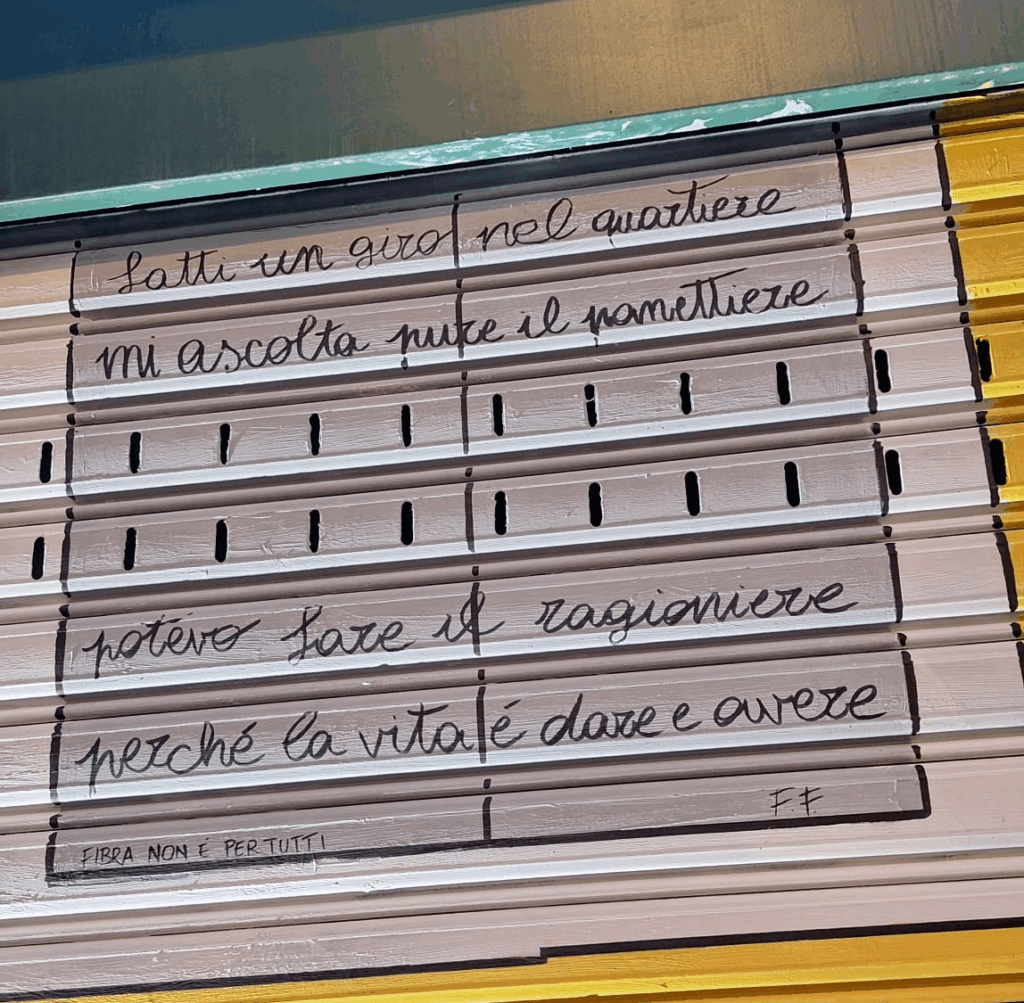 fatti un giro nel quartiere
mi ascolta pure il panettiere
potevo fare il ragioniere
perché la vita é dare e avere
F.F.
FIBRA NON É PER TUTTI